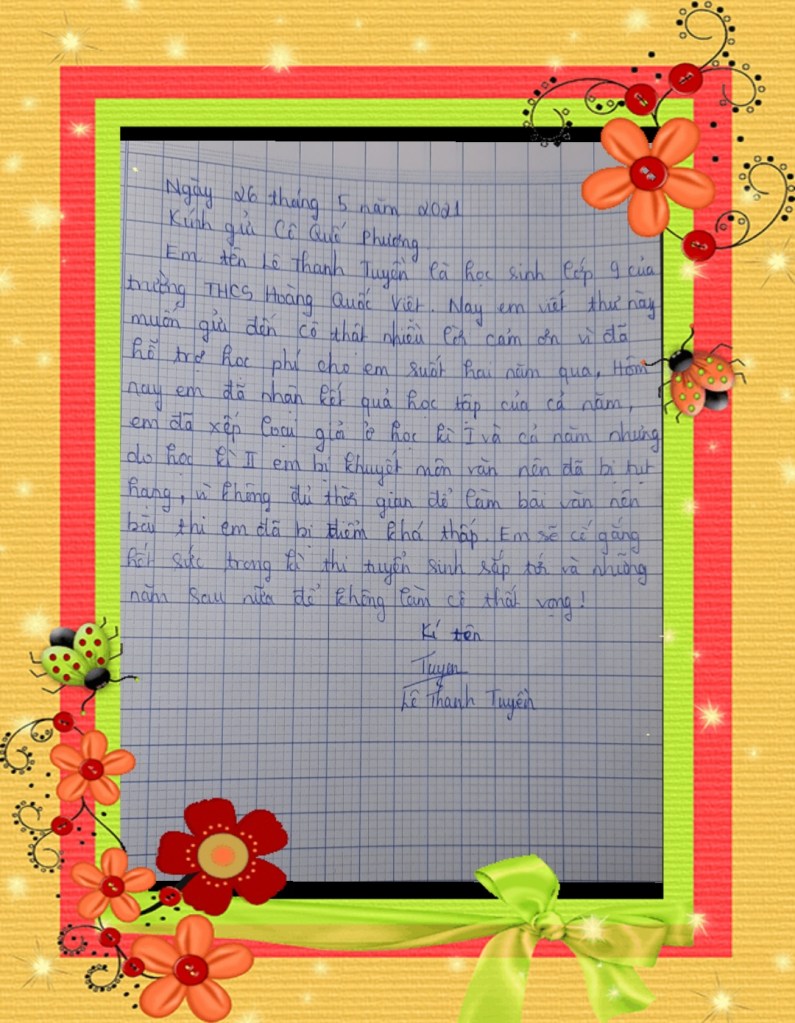 Ngày 26 tháng 5 năm 2021
Kính gửi Cô Quế Phương
Em tên Lê Thanh Tuyền là học sinh lớp 9 của
trường THCS Hoàng Quốc Việt. Nay em viết thư này
muốn gửi đến cô thật nhiều lời cám ơn vì đã
hỗ trợ học phí cho em suốt hai năm qua, Hôm
nay em đã nhận kết quả học tập của cả năm,
em đã xếp loại giỏi ở học kì I và cả năm nhưng
do học kì II em bị khuyết môn văn nên đã bị hụt
hạng, vì không đủ thời gian để làm bài văn nên
bài thi em đã bị điểm khá thấp. Em sẽ cố gắng
hết sức trong kì thi tuyển sinh sắp tới và những
năm sau nữa để không làm cô thất vọng!
Kí tên
Tuyen
Lê Thanh Tuyền